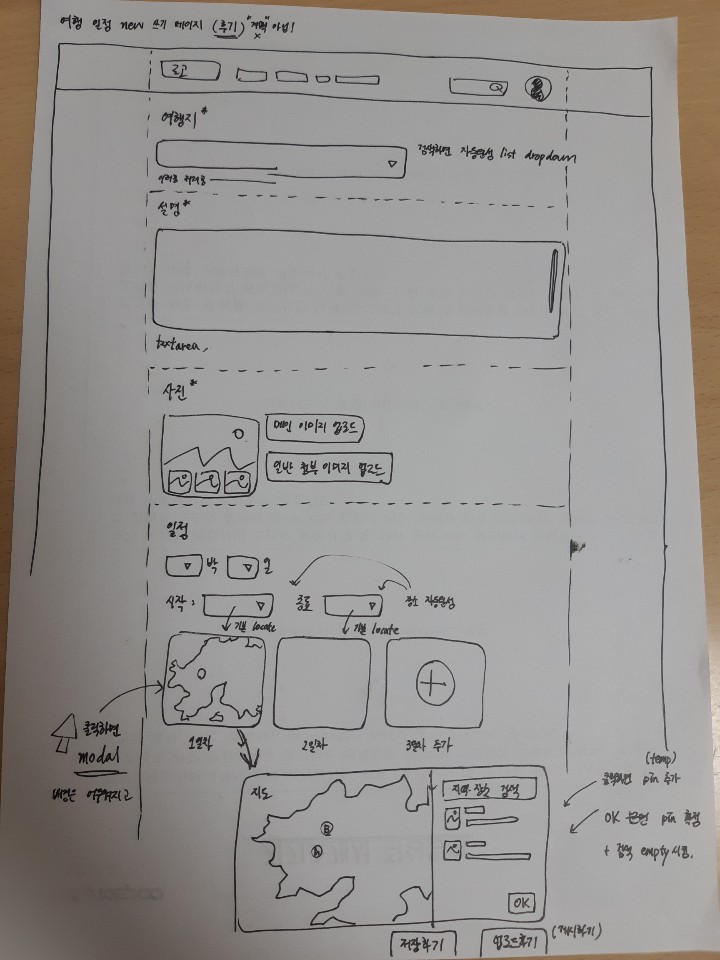 여행 일정 new 쓰기 페이지 (후기) "계획" 아님!
x
로고
여행지*
검색하면 자동완성 list dropdown
설명*
textarea.
사진*
메인 이미지 업로드
일반 첨부 이미지 업로드
일정
박 일
시작: 종료 장소 자동완성
기본 locate 기본 locate
클릭하면
modal
배경은 어두워지고
1일차 2일차 3일차 추가
지도 지역·장소 검색
(temp)
클릭하면 pin 추가
OK 누르면 pin 확정
+ 검색 empty 시킴.
OK
저장하기 업로드하기 (게시하기)